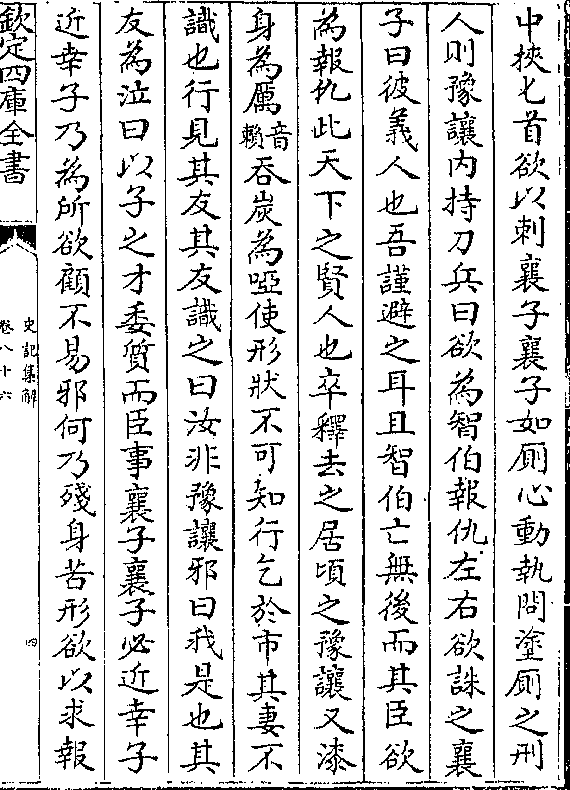 中挾匕首欲以刺襄子襄子如厠心動執問塗厠之刑
人則豫讓内持刀兵曰欲為智伯報仇左右欲誅之襄
子曰彼義人也吾謹避之耳且智伯亡無後而其臣欲
為報仇此天下之賢人也卒釋去之居頃之豫讓又漆
身為厲音賴吞炭為啞使形狀不可知行乞於市其妻不
識也行見其友其友識之曰汝非豫讓邪曰我是也其
友為泣曰以子之才委質而臣事襄子襄子必近幸子
近幸子乃為所欲顧不易邪何乃殘身苦形欲以求報
欽定四庫全書
史記集解
卷八十六
四